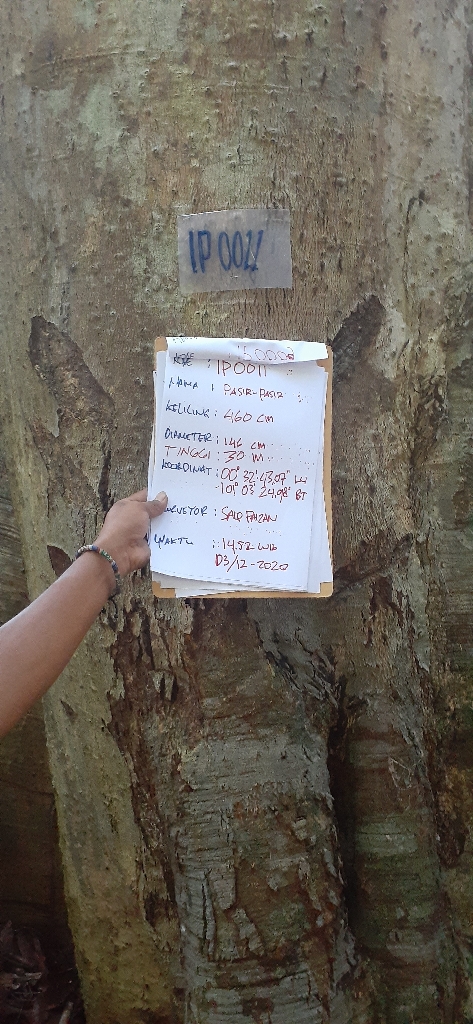 IP 0011
KODE : IP0011
NAMA : PASIR-PASIR
KELILING : 460 CM
DIAMETER : 146 CM
TINGGI : 30 M
KOORDINAT : 00° 32' 43,07" LU
101° 03' 24,98" BT
: SAID FAIZAN
WAKTU : 14.52 WIB
03/12-2020